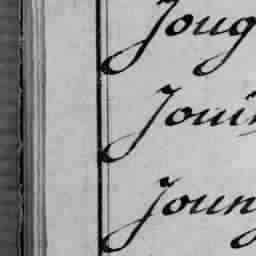 Joug
Jouin
Joung